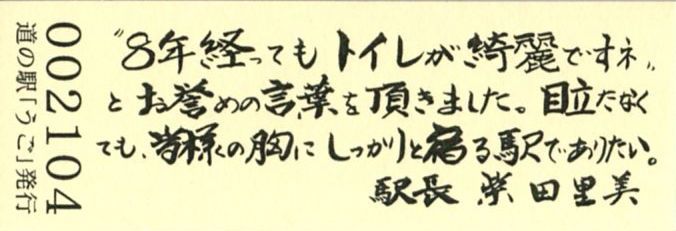 〝8年経ってもトイレが綺麗ですネ〟
とお誉めの言葉を頂きました。目立たなく
ても、皆様の胸にしっかりと宿る駅でありたい。
駅長 柴田里美
002104
道の駅「うご」発行